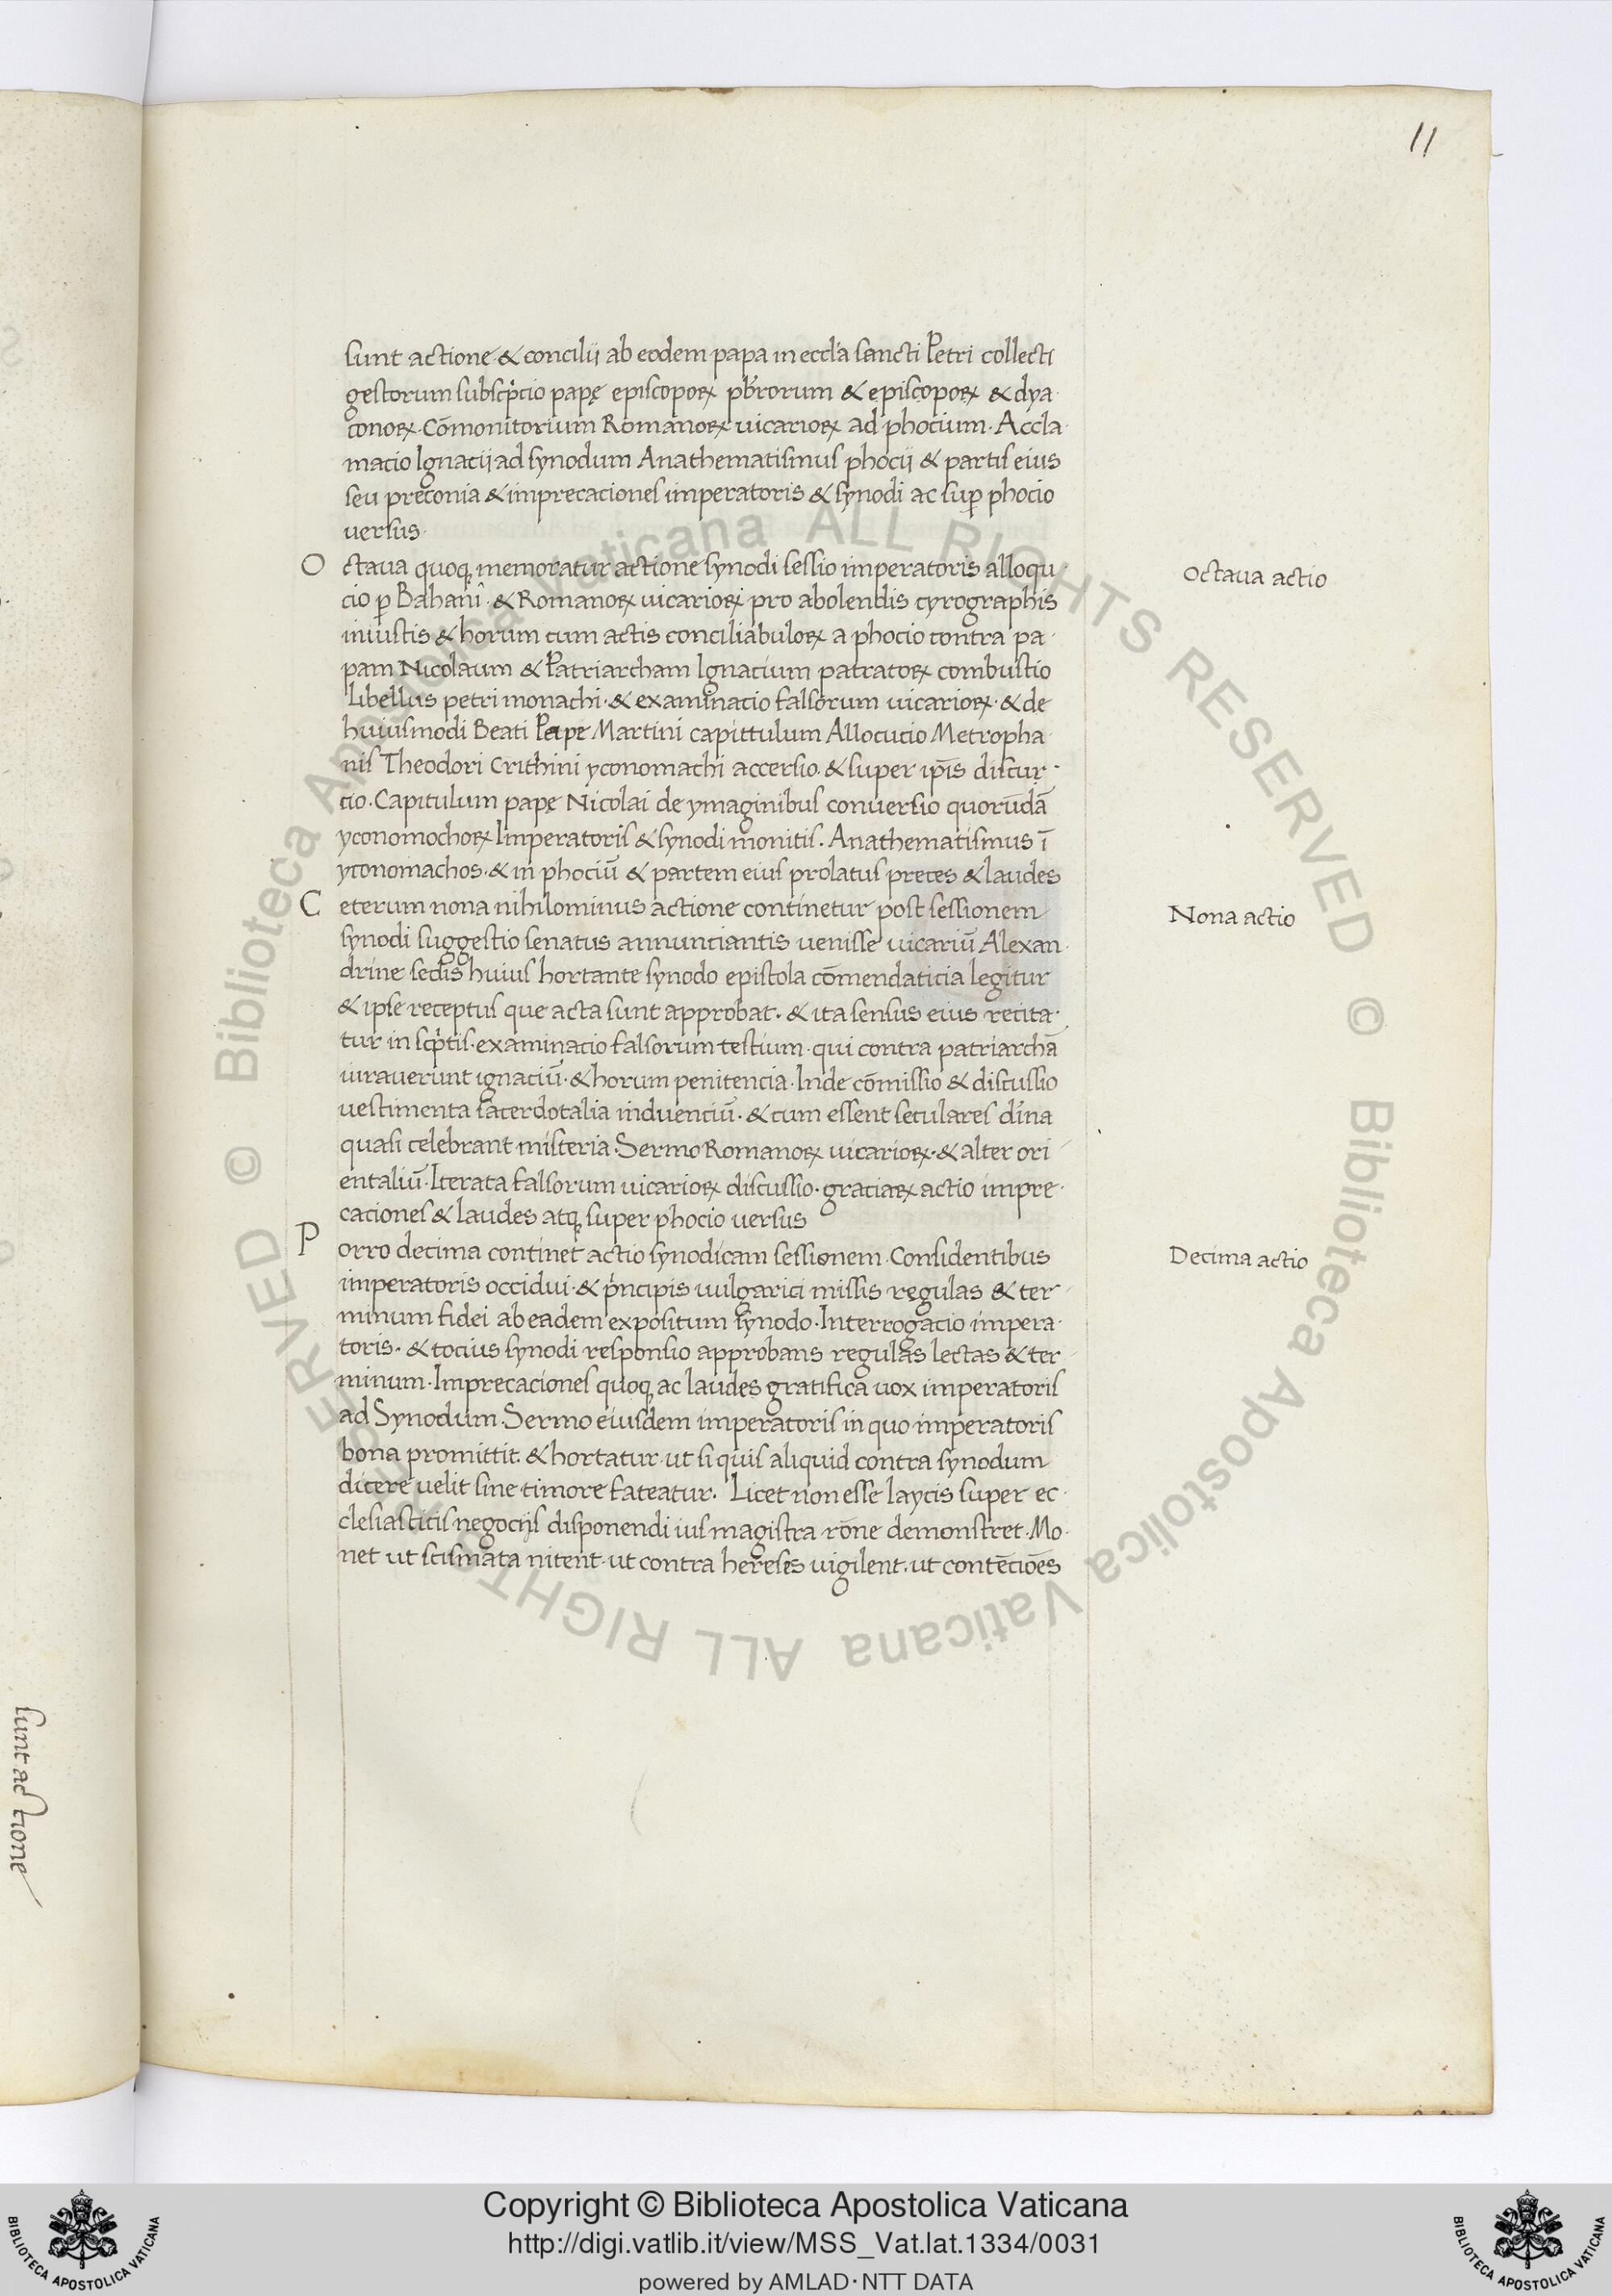 11
sunt actione & concilii ab eodem papa in eccl̄a sancti Petri collecti
gestorum subscp̄tio papę episcopoꝝ pb̄rorum & episcopoꝝ & dya·
conoꝝ· Cōmonitorium Romanoꝝ uicarioꝝ ad phocium· Accla·
matio Ignacii ad synodum Anathematismus phocii & partis eius
seu preconia & imprecaciones imperatoris & synodi ac suꝑ phocio
uersus·
Octaua quoqꝫ memoratur actione synodi sessio imperatoris alloqu·
cio ꝑ Bahanī· & Romanoꝝ uicarioꝝ pro abolendis cyrographis
iniustis & horum cum actis conciliabuloꝝ a phocio contra pa·
pam Nicolaum & Patriarcham Ignacium patratoꝝ combustio
Libellus petri monachi· & examinacio falsorum uicarioꝝ· & de
huiusmodi Beati Pape Martini capittulum Allocucio Metropha·
nis Theodori Crithini yconomachi accersio· & super ip̄is discur·
cio· Capitulum papę Nicolai de ymaginibus conuersio quorūdā
yconomochoꝝ Imperatoris & synodi monitis· Anathematismus ī
yconomachos· & in phociū & partem eius prolatus preces & laudes
Ceterum nona nihilominus actione continetur post sessionem
synodi suggestio senatus annunciantis uenisse uicariū Alexan·
drine sedis huius hortante synodo epistola cōmendaticia legitur
& ipse receptus que acta sunt approbat· & ita sensus eius recita·
tur in scp̄tis· examinacio falsorum testium· qui contra patriarchā
iurauerunt ignaciū· & horum penitencia· Inde cōmissio & discussio
uestimenta sacerdotalia induenciū· & cum essent seculares diīna
quasi celebrant misteria· Sermo Romanoꝝ uicarioꝝ· & alter ori
entaliū· Iterata falsorum uicarioꝝ discussio· graciaꝝ actio impre·
caciones & laudes atqꝫ super phocio uersus
Porro decima continet actio synodicam sessionem· Considentibus
imperatoris occidui· & p̄ncipis uulgarici missis regulas & ter
minum fidei ab eadem expositum synodo· Interrogacio impera·
toris· & tocius synodi responsio approbans regulas lectas & ter
minum· Imprecaciones quoqꝫ ac laudes gratifica uox imperatoris
ad Synodum· Sermo eiusdem imperatoris in quo imperatoris
bona promittit· & hortatur· ut si quis aliquid contra synodum
dicere uelit sine timore fateatur· Licet non esse laycis super ec·
clesiasticis negociis disponendi ius magistra rōne demonstret· Mo·
net ut scismata nitent· ut contra hereses uigilent· ut contēciōes
Octaua actio
Nona actio
Decima actio
sunt actione
© Biblioteca Apostolica Vaticana ALL RIGHTS RESERVED © Biblioteca Apostolica Vaticana ALL RIGHTS RESERVED
BIBLIOTECA APOSTOLICA VATICANA
Copyright © Biblioteca Apostolica Vaticana
http://digi.vatlib.it/view/MSS_Vat.lat.1334/0031
powered by AMLAD·NTT DATA
BIBLIOTECA APOSTOLICA VATICANA